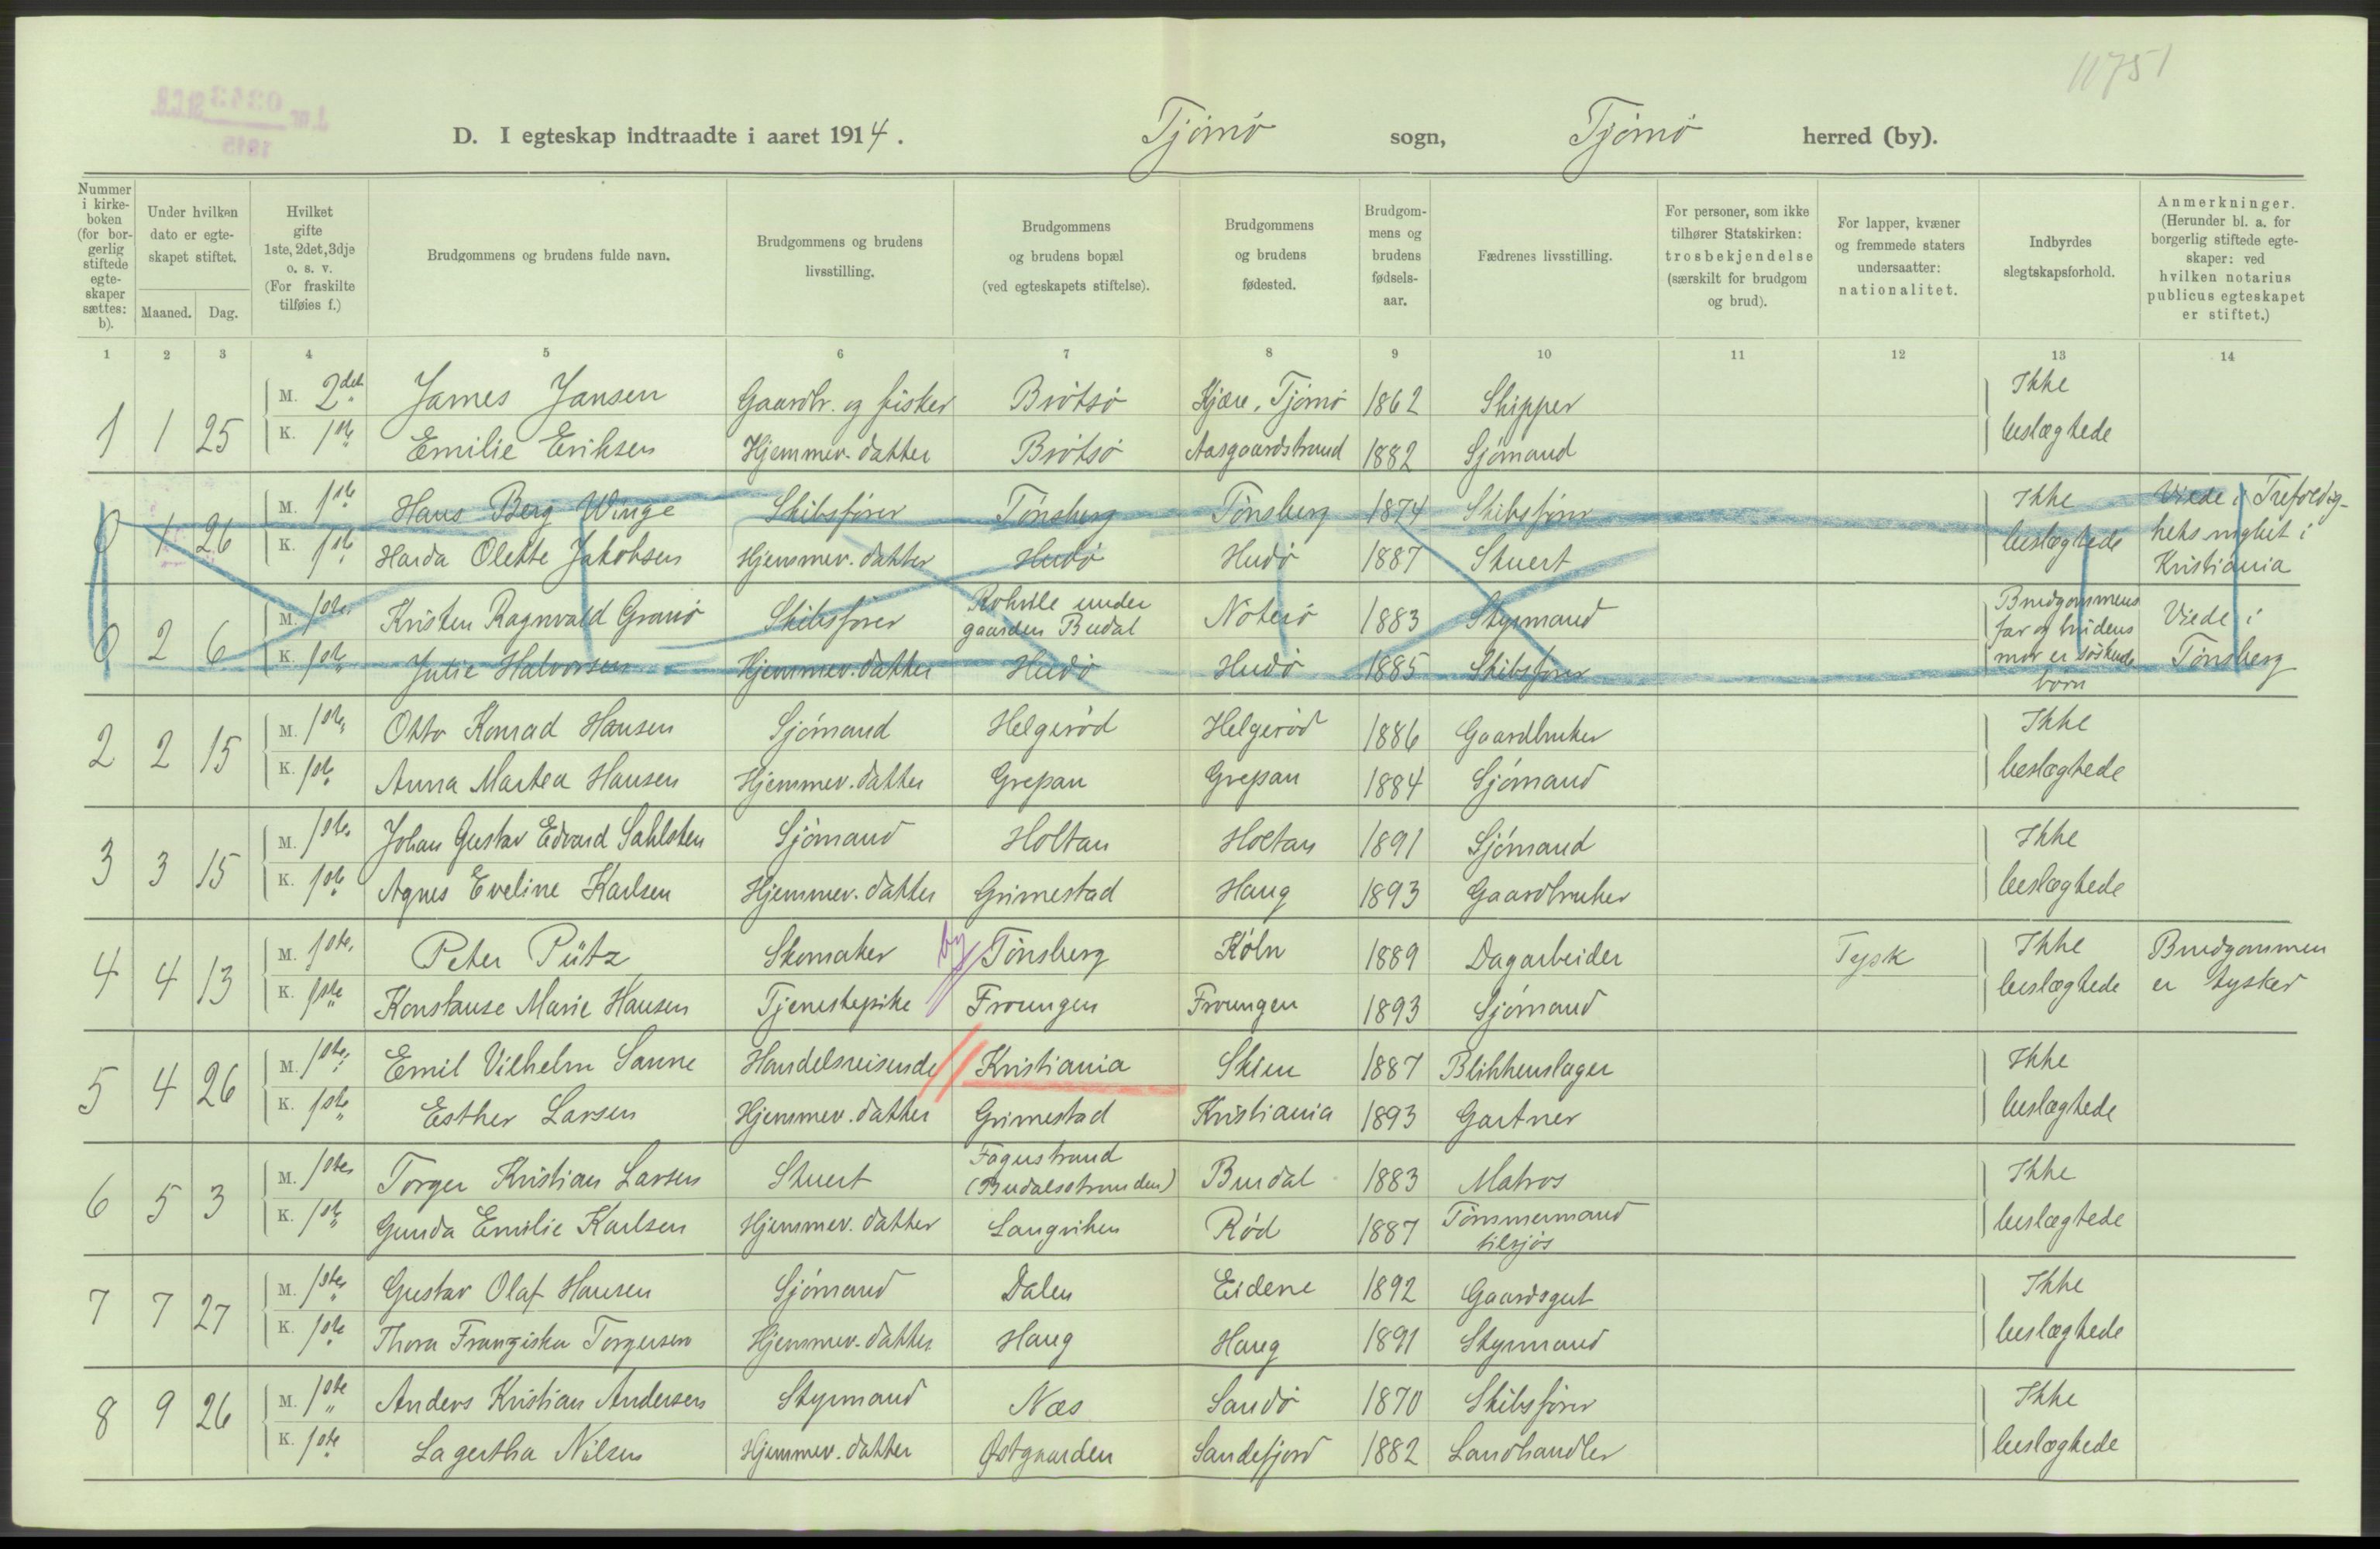 11751
J. nr. 0343 St.C.B.
1915
D. I egteskap indtraadte i aaret 1914. Tjömö sogn, Tjömö herred (by).
Nummer i kirkeboken (for borgerlig stiftede egteskaper sættes: b).
Under hvilken dato er egteskapet stiftet.
Maaned. Dag.
Hvilket gifte 1ste, 2det, 3dje o. s. v. (For fraskilte tilføies f.)
Brudgommens og brudens fulde navn.
Brudgommens og brudens livsstilling.
Brudgommens og brudens bopæl (ved egteskapets stiftelse).
Brudgommens og brudens fødested.
Brudgommens og brudens fødselsaar.
Fædrenes livsstilling.
For personer, som ikke tilhører Statskirken: trosbekjendelse (særskilt for brudgom og brud).
For lapper, kvæner og fremmede staters undersaatter: nationalitet.
Indbyrdes slegtskapsforhold.
Anmerkninger. (Herunder bl. a. for borgerlig stiftede egteskaper: ved hvilken notarius publicus egteskapet er stiftet.)
1 2 3 4 5 6 7 8 9 10 11 12 13 14
1 1 25 M. 2det James Jansen Gaardbr. og fisker Brötsö Kjære, Tjömö 1862 Skipper Ikke
K. 1ste Emilie Eriksen Hjemmev. datter Brötsö Aasgaardstrand 1882 Sjömand beslægtede
0 1 26 M. 1ste Hans Berg Winge Skibsförer Tönsberg Tönsberg 1874 Skibsförer Ikke Viede i Trefoldig-
K. 1ste Harda Olette Jakobsen Hjemmev. datter Hudö Hudö 1887 Stuert beslægtede hets meghet i
Kristiania
0 2 6 M. 1ste Kristen Ragnvald Granö Skibsförer Rohille under gaarden Budal Nöterö 1883 Styrmand Brudgommens far og brudens Viede i
K. 1ste Julie Halvorsen Hjemmev. datter Hudö Hudö 1885 Skibsförer mor er söskende börn Tönsberg
2 2 15 M. 1ste Otto Konrad Hansen Sjömand Helgeröd Helgeröd 1886 Gaardbruker Ikke
K. 1ste Anna Martea Hansen Hjemmev. datter Grepan Grepan 1884 Sjömand beslægtede
3 3 15 M. 1ste Johan Gustav Edvard Sahlsten Sjömand Holtan Holtan 1891 Sjömand Ikke
K. 1ste Agnes Eveline Karlsen Hjemmev. datter Grimestad Haug 1893 Gaardbruker beslægtede
4 4 13 M. 1ste Peter Pütz Skomaker by Tönsberg Köln 1889 Dagarbeider Tysk Ikke Brudgommen
K. 1ste Konstanse Marie Hansen Tjenestepike Froungen Froungen 1893 Sjömand beslægtede er tysker
5 4 26 M. 1ste Emil Vilhelm Sanne Handelsreisende Kristiania Skien 1887 Blikkenslager Ikke
K. 1ste Esther Larsen Hjemmev. datter Grimestad Kristiania 1893 Gartner beslægtede
6 5 3 M. 1ste Torger Kristian Larsen Stuert Fagerstrand (Budalsstranden) Burdal 1883 Matros Ikke
K. 1ste Gunda Emilie Karlsen Hjemmev. datter Langviken Röd 1887 Tömmermand tilsjös beslægtede
7 7 27 M. 1ste Gustav Olaf Hansen Sjömand Dalen Eidene 1892 Gaardsgut Ikke
K. 1ste Thora Franziska Torgersen Hjemmev. datter Haug Haug 1891 Styrmand beslægtede
8 9 26 M. 1ste Anders Kristian Andersen Styrmand Næs Sandö 1870 Skibsförer Ikke
K. 1ste Lagertha Nilsen Hjemmev. datter Østgaarden Sandefjord 1882 Landhandler beslægtede